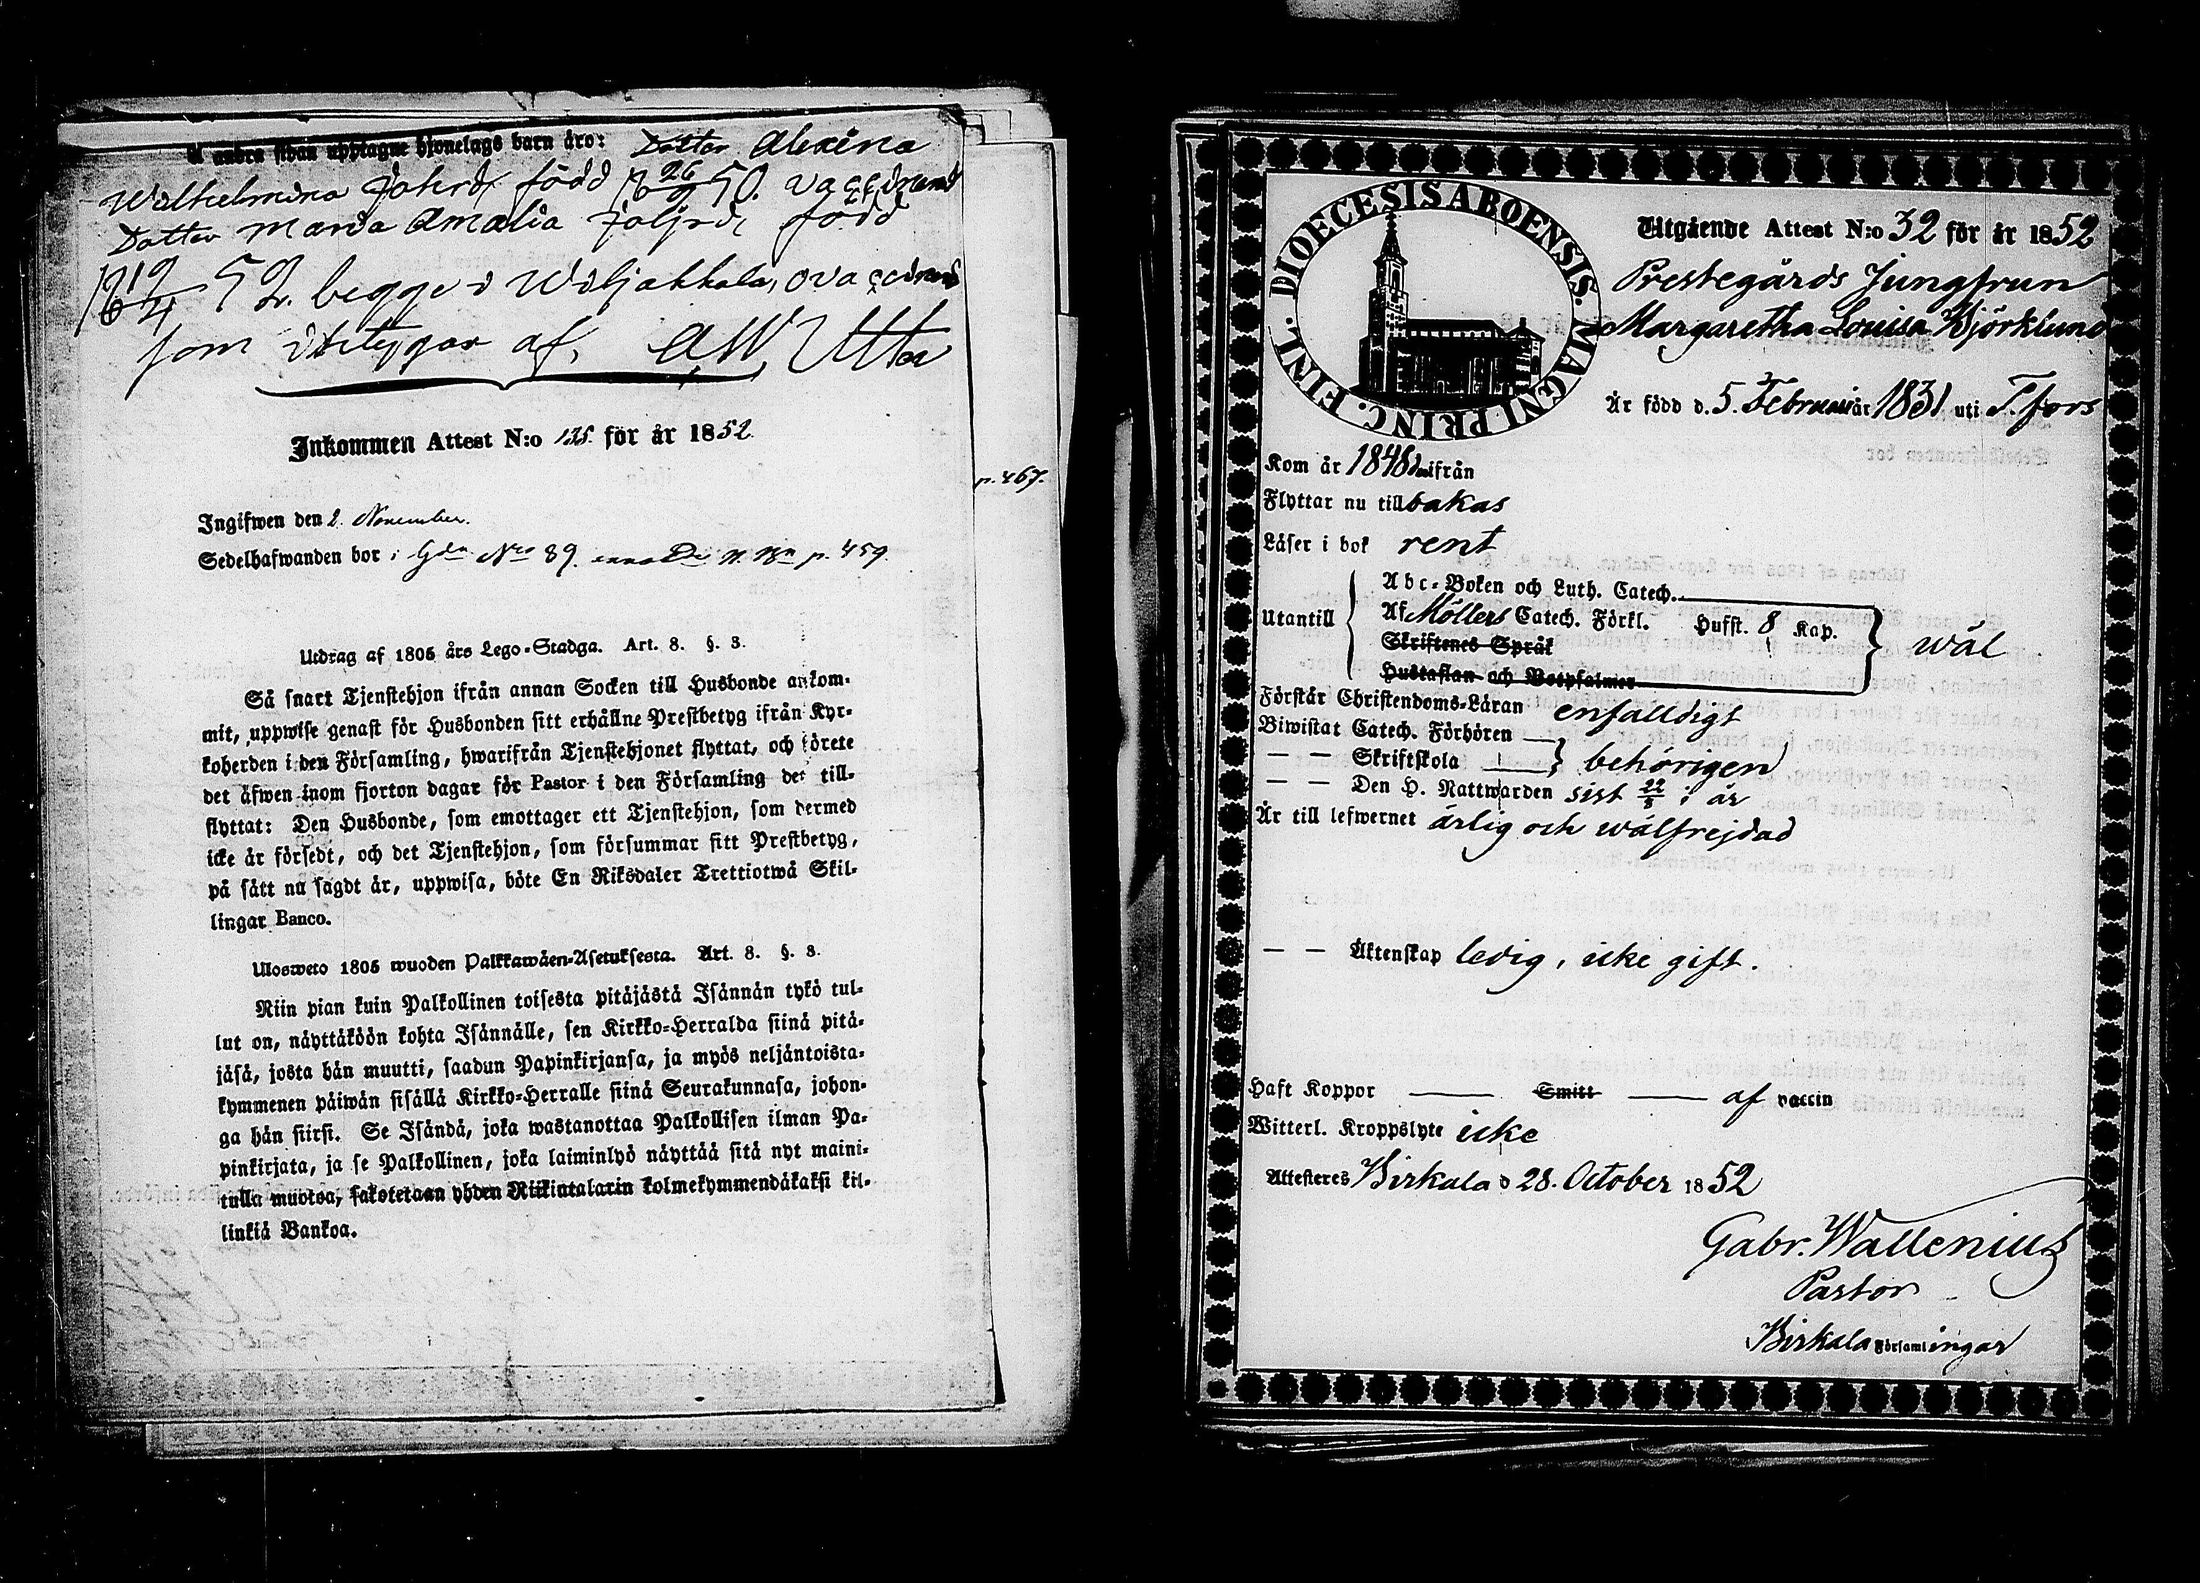 å andra sidan upptagne hjonelags barn äro: Dotter Alexina
Wilhelmina Johsdr född 18 26/9 50. vaccinerad
Dotter Maria Amalia följer, född
18 19/4 52. begge i Wiljakkala, ovaccinerad
som intygar af, AW Utter
Inkommen Attest N:o 135. för år 1852.
Ingifwen den 2. November.
Sedelhafwanden bor i Gdn Nro 89. p. 459.
Utdrag af 1805 års Lego-Stadga. Art. 8. §. 3.
Så snart Tjenstehjon ifrån annan Socken till Husbonde ankom-
mit, uppwise genast för Husbonden sitt erhållne Prestbetyg ifrån Kyr-
koherden i den Församling, hwarifrån Tjenstehjonet flyttat, och förete
det äfwen inom fjorton dagar för Pastor i den Församling det till-
flyttat: Den Husbonde, som emottager ett Tjenstehjon, som dermed
icke är försedt, och det Tjenstehjon, som försummar sitt Prestbetyg,
på sätt nu sagdt är, uppwisa, böte En Riksdaler Trettiotwå Skil-
lingar Banco.
Ulosweto 1805 wuoden Palkkawäen-Asetuksesta. Art. 8. §. 3.
Niin pian kuin Palkollinen toisesta pitäjästä Isännän tykö tul-
lut on, näyttäköön kohta Isännälle, sen Kirkko-Herralda siinä pitä-
jäsä, josta hän muutti, saadun Papinkirjansa, ja myös neljäntoista-
kymmenen päiwän sisällä Kirkko-Herralle siinä Seurakunnasa, johon-
ga hän siirsi. Se Isändä, joka wastanottaa Palkollisen ilman Pa-
pinkirjata, ja se Palkollinen, joka laiminlyö näyttää sitä nyt maini-
tulla muotoa, sakotetaan yhden Riikintalarin kolmekymmendäkaksi kil-
linkiä Bankoa.
p. 467.
DIOECESIS ABOENSIS. MAGNI PRINC. FINL.
Utgående Attest N:o 32 för år 1852
Prestegårds Jungfrun
Margaretha Lovisa Björklund
Är född d. 5. Februari år 1831 uti T.fors
Kom år 1848 derifrån
Flyttar nu tillbakas
Läser i bok rent
Utantill
Abc-Boken och Luth. Catech.
Af Möllers Catech. Förkl. Hufst. 8 Kap.
Skriftenes Språk
Hustaflan och Botpsalmer
wäl
Förstår Christendoms-Läran enfaldigt
Biwistat Catech. Förhören
— — Skriftskola behörigen
— — Den H. Nattwarden sist 22/8 i år
Är till lefwernet ärlig och wälfrejdad
— — Äktenskap ledig, icke gift.
Haft Koppor — Smitt — af vaccin
Witterl. Kroppslyte icke
Attesteres Birkala d 28. October 1852
Gabr. Wallenius
Pastor
Birkala Församlingar